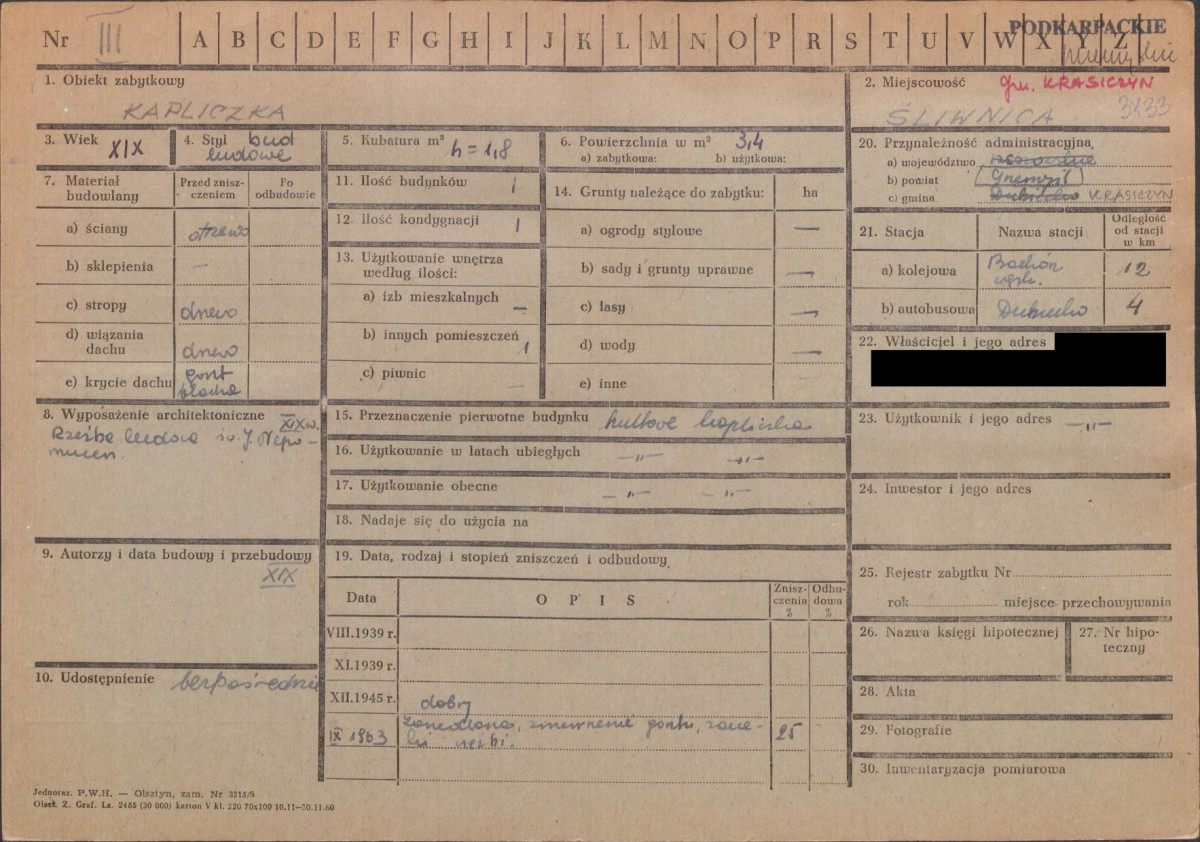 Nr III A B C D E F G H I J K L M N O P R S T U V W X Y Z PODKARPACKIE
1. Obiekt zabytkowy
KAPLICZKA
2. Miejscowość gm. KRASICZYN
ŚLIWNICA 3133
3. Wiek XIX
4. Styl bud
ludowe
5. Kubatura m³ h = 1,8
6. Powierzchnia w m² 3,4
a) zabytkowa: b) użytkowa:
7. Materiał budowlany
Przed znisz-
czeniem
Po
odbudowie
a) ściany drewo
b) sklepienia –
c) stropy drewo
d) wiązania
dachu drewo
e) krycie dachu gont
blacha
8. Wyposażenie architektoniczne XIX w.
Rzeźba ludowa św. J. Nepo-
mucen.
9. Autorzy i data budowy i przebudowy
XIX
10. Udostępnienie bezpośrednie
11. Ilość budynków 1
12. Ilość kondygnacji 1
13. Użytkowanie wnętrza
według ilości:
a) izb mieszkalnych –
b) innych pomieszczeń 1
c) piwnic –
14. Grunty należące do zabytku: ha
a) ogrody stylowe –
b) sady i grunty uprawne –
c) łasy –
d) wody –
e) inne –
15. Przeznaczenie pierwotne budynku kultowe kapliczka
16. Użytkowanie w latach ubiegłych –„– –„–
17. Użytkowanie obecne –„– –„–
18. Nadaje się do użycia na
19. Data, rodzaj i stopień zniszczeń i odbudowy
Data OPIS Znisz-
czenia
%
Odbu-
dowa %
VIII.1939 r.
XI.1939 r.
XII.1945 r. dobry
IX 1963 zaniedbana, gontu, 25
20. Przynależność administracyjna
a) województwo rzeszowskie
b) powiat Przemyśl
c) gmina Dubiecko KRASICZYN
21. Stacja Nazwa stacji Odległość
od stacji
w km
a) kolejowa Bachórz
12
b) autobusowa Dubiecko 4
22. Właściciel i jego adres
23. Użytkownik i jego adres –„–
24. Inwestor i jego adres
25. Rejestr zabytku Nr
rok miejsce przechowywania
26. Nazwa księgi hipotecznej
27. Nr hipo-
teczny
28. Akta
29. Fotografie
30. Inwentaryzacja pomiarowa
Jednoraz. P.W.H. — Olsztyn, zam. Nr 3215/S
Olszt. Z. Graf. Lz. 2485 (30 000) karton V kl. 220 70x100 10.11—30.11.60